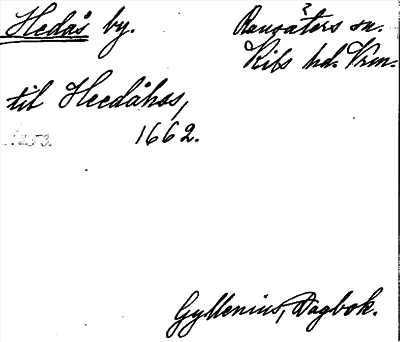 Hedås by. Ransäters sn.
Kils hd. Vrm.
til Heedåhss,
1662.
Gyllenius, Dagbok.